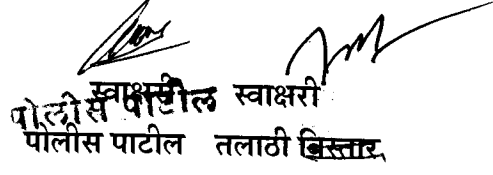 स्वाक्षरी स्वाक्षरी
पोलीस पाटील
पोलीस पाटील तलाठी विस्तार